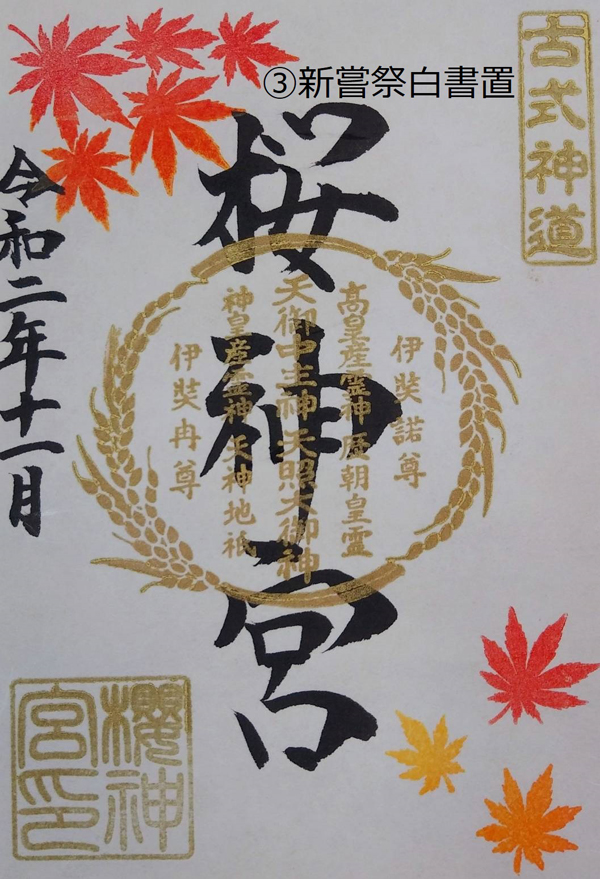 ③新嘗祭白書置
古式神道
桜神宮
伊弉諾尊
高皇産霊神 歴朝皇霊
天御中主神 天照大御神
神皇産霊神 天神地祇
伊弉冉尊
令和二年十一月
櫻神
宮印